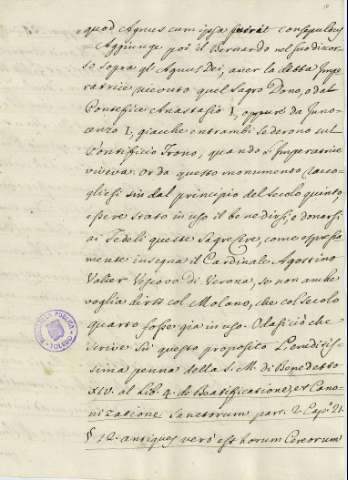 quod Agnus cum ipsa fuerit consepultus
Aggiunge poi il Bernardo nel suo discor-
so sopra gl'Agnus Dei, aver la detta Impe-
ratrice ricevuto quel Sagro Dono, o dal
Pontefice Anastasio I, oppure da Inno-
cenzo I, giacche entrambi sederono sul
Pontificio Trono, quando l'Imperatrice
viveva. Or da questo monumento racco-
gliesi sin dal principio del secolo quinto,
essere stato in uso il benedirsi, e donarsi
ai Fedeli queste sagre cire, come espressa-
mente insegna il Cardinale Agostino
Valier Vescovo di Verona, se non anche
voglia dirsi col Molano, che col secolo
quarto fosse già in uso. O lasciò che
scrive sù questo proposito l'eruditis-
sima penna della S. M. di Benedetto
XIV. al lib. 4. de Beatificatione, et Cano-
nizatione Sanctorum par. 2. Cap. 21.
§ 12. antiquus verò est horum Cereorum
BIBLIOTECA PUBLICA
TOLEDO